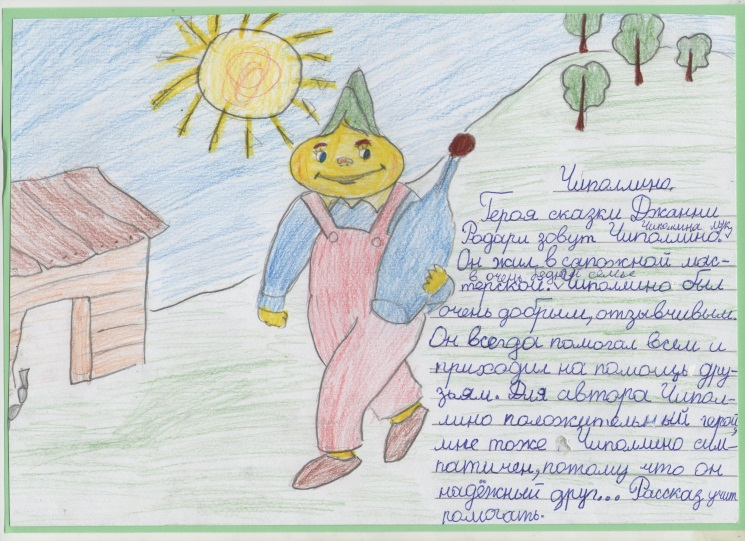 Чиполлино.
Героя сказки Джанни
Родари зовут Чиполлино. Чиполлина лук,
Он жил в сапожной мас-
в очень бедной семье
терской. Чиполлино был
очень добрым, отзывчивым.
Он всегда помогал всем и
приходил на помощь дру-
зьям. Для автора Чипол-
лино положительный герой,
мне тоже Чиполлино сим-
патичен, потому что он
надёжный друг... Рассказ учит
помогать.